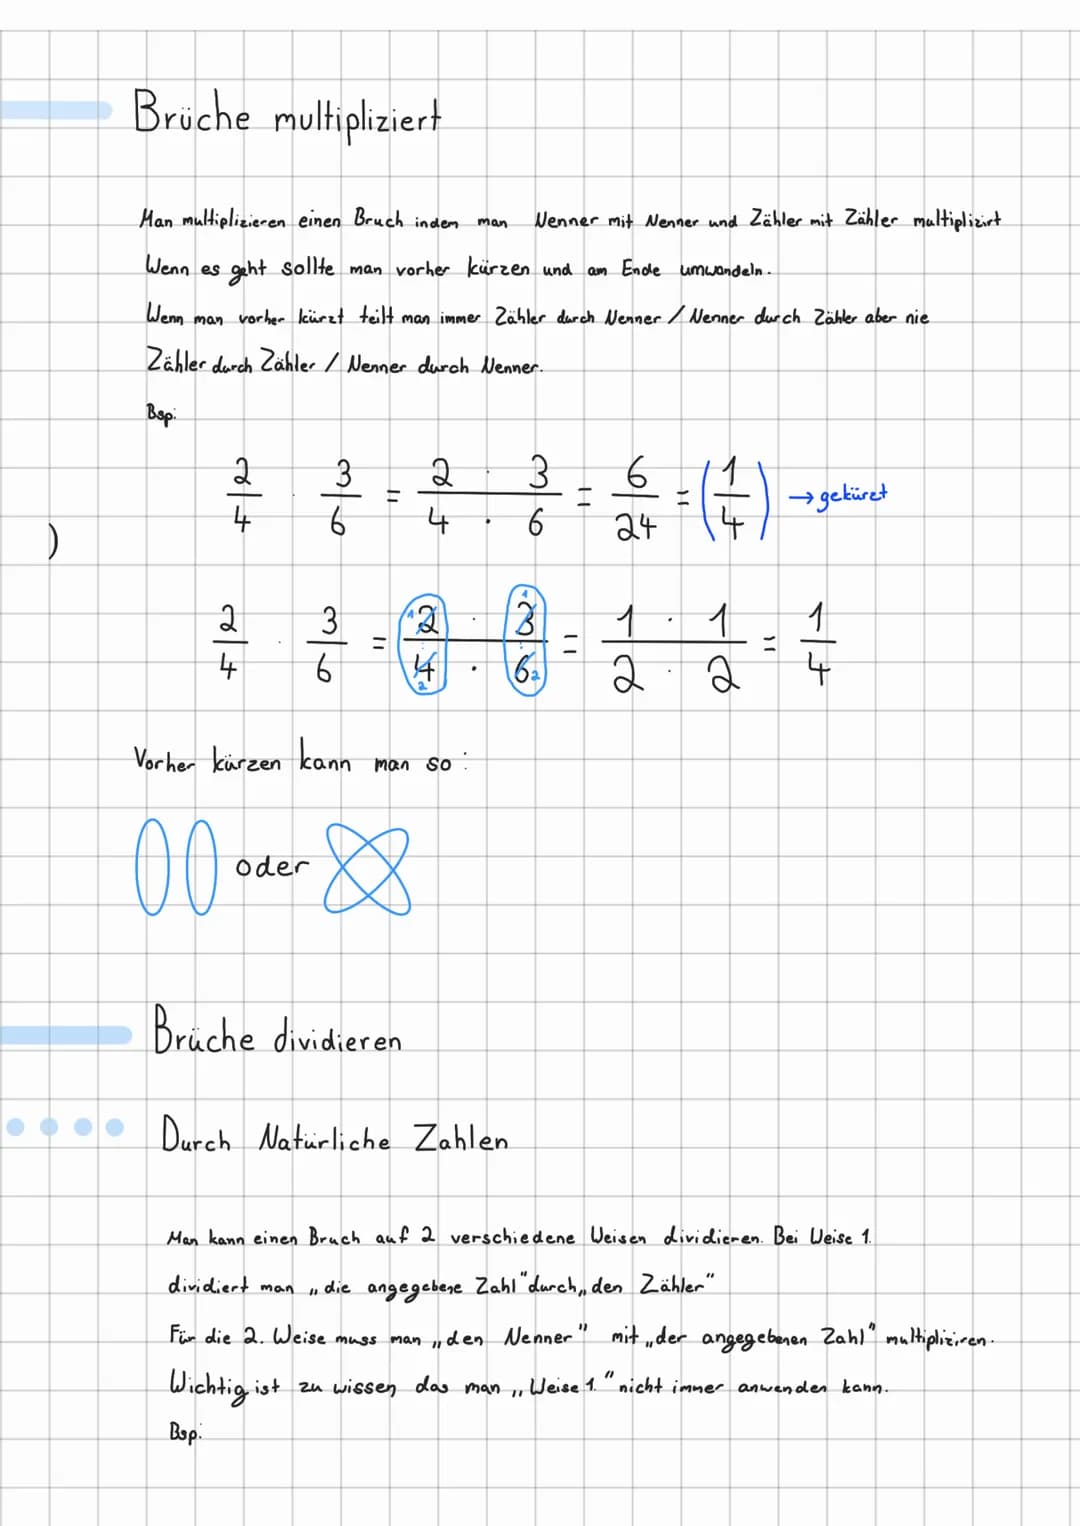 Brüche multipliziert
Man multiplizieren einen Bruch indem man Nenner mit Nenner und Zähler mit Zähler multiplizirt
Wenn es geht sollte man vorher kürzen und am Ende umwandeln.
Wenn man vorher kürzt teilt man immer Zähler durch Nenner / Nenner durch Zähler aber nie
Zähler durch Zähler / Nenner durch Nenner.
Bsp:
2/4 · 3/6 = 2 · 3 / 4 · 6 = 6/24 = (1/4) → gekürzt
)
2/4 · 3/6 = 1 2 · 1 3 / 4 2 · 6 2 = 1 · 1 / 2 · 2 = 1/4
Vorher kürzen kann man so:
oder
Brüche dividieren
Durch Natürliche Zahlen
Man kann einen Bruch auf 2 verschiedene Weisen dividieren. Bei Weise 1.
dividiert man „die angegebene Zahl" durch „den Zähler"
Für die 2. Weise muss man „den Nenner" mit „der angegebenen Zahl" multipliziren.
Wichtig ist zu wissen das man „Weise 1." nicht immer anwenden kann.
Bsp: